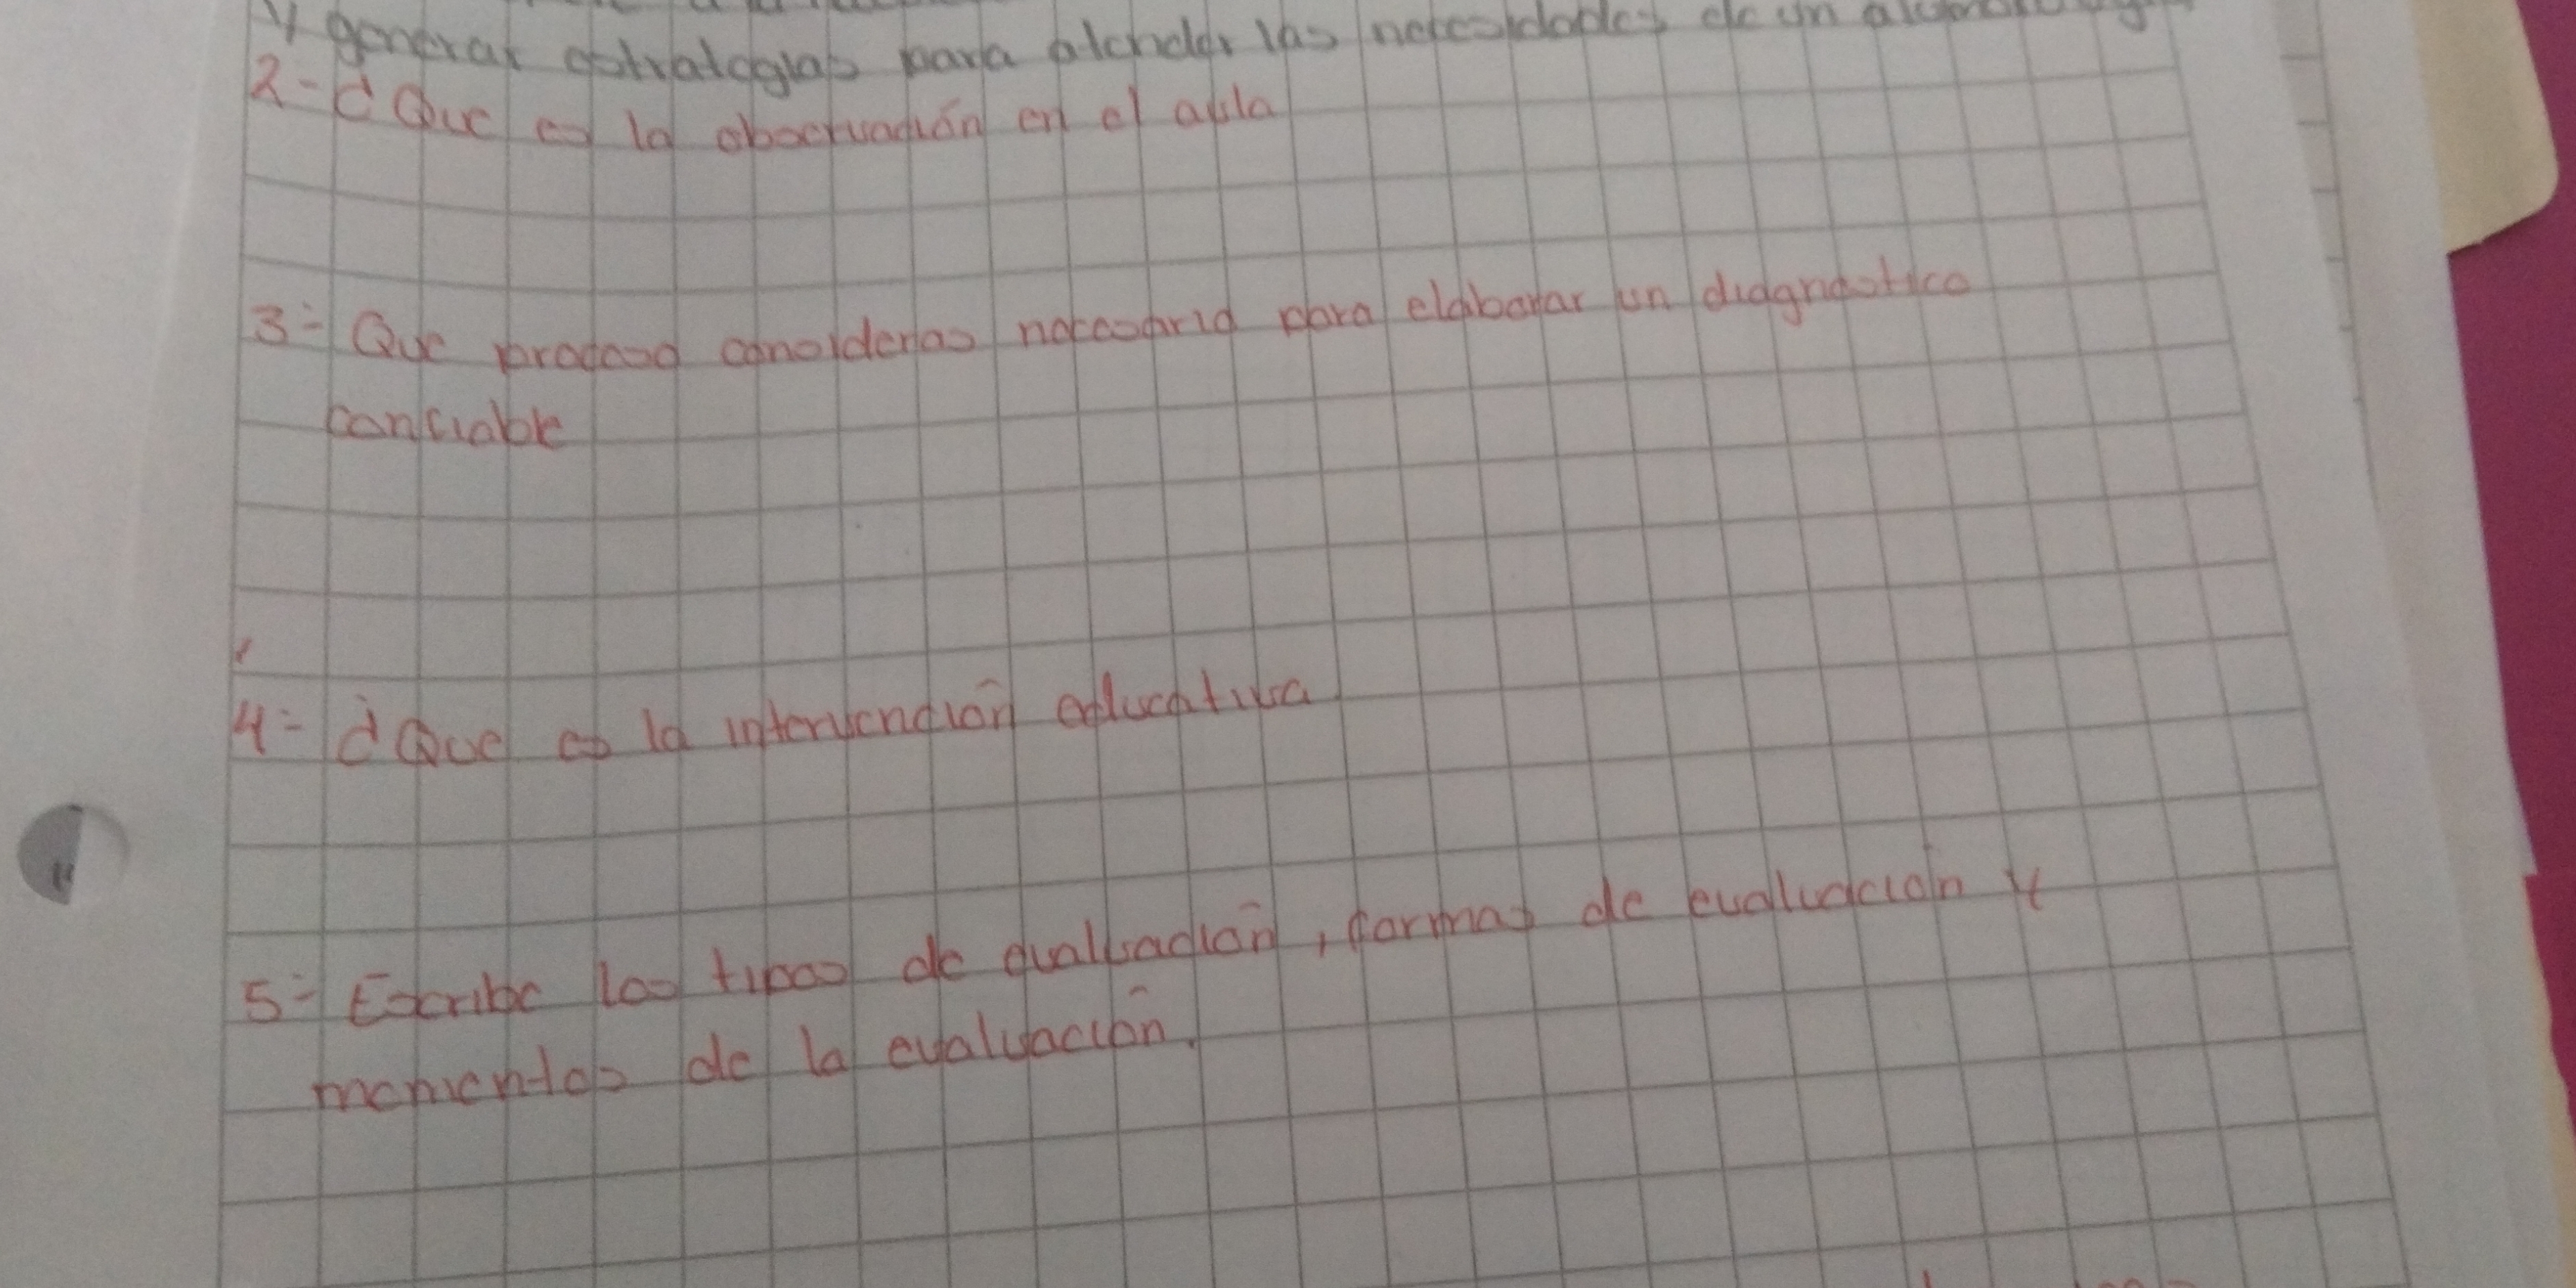 y generar estrategias para atender las necesidades de un
2- ¿Que es la observación en el aula
3- Que proceso consideras necesario para elaborar un diagnostico
confiable
4- ¿Que es la intervención educativa
5- Escribe los tipos de evaluación, formas de evaluación y
momentos de la evaluación.